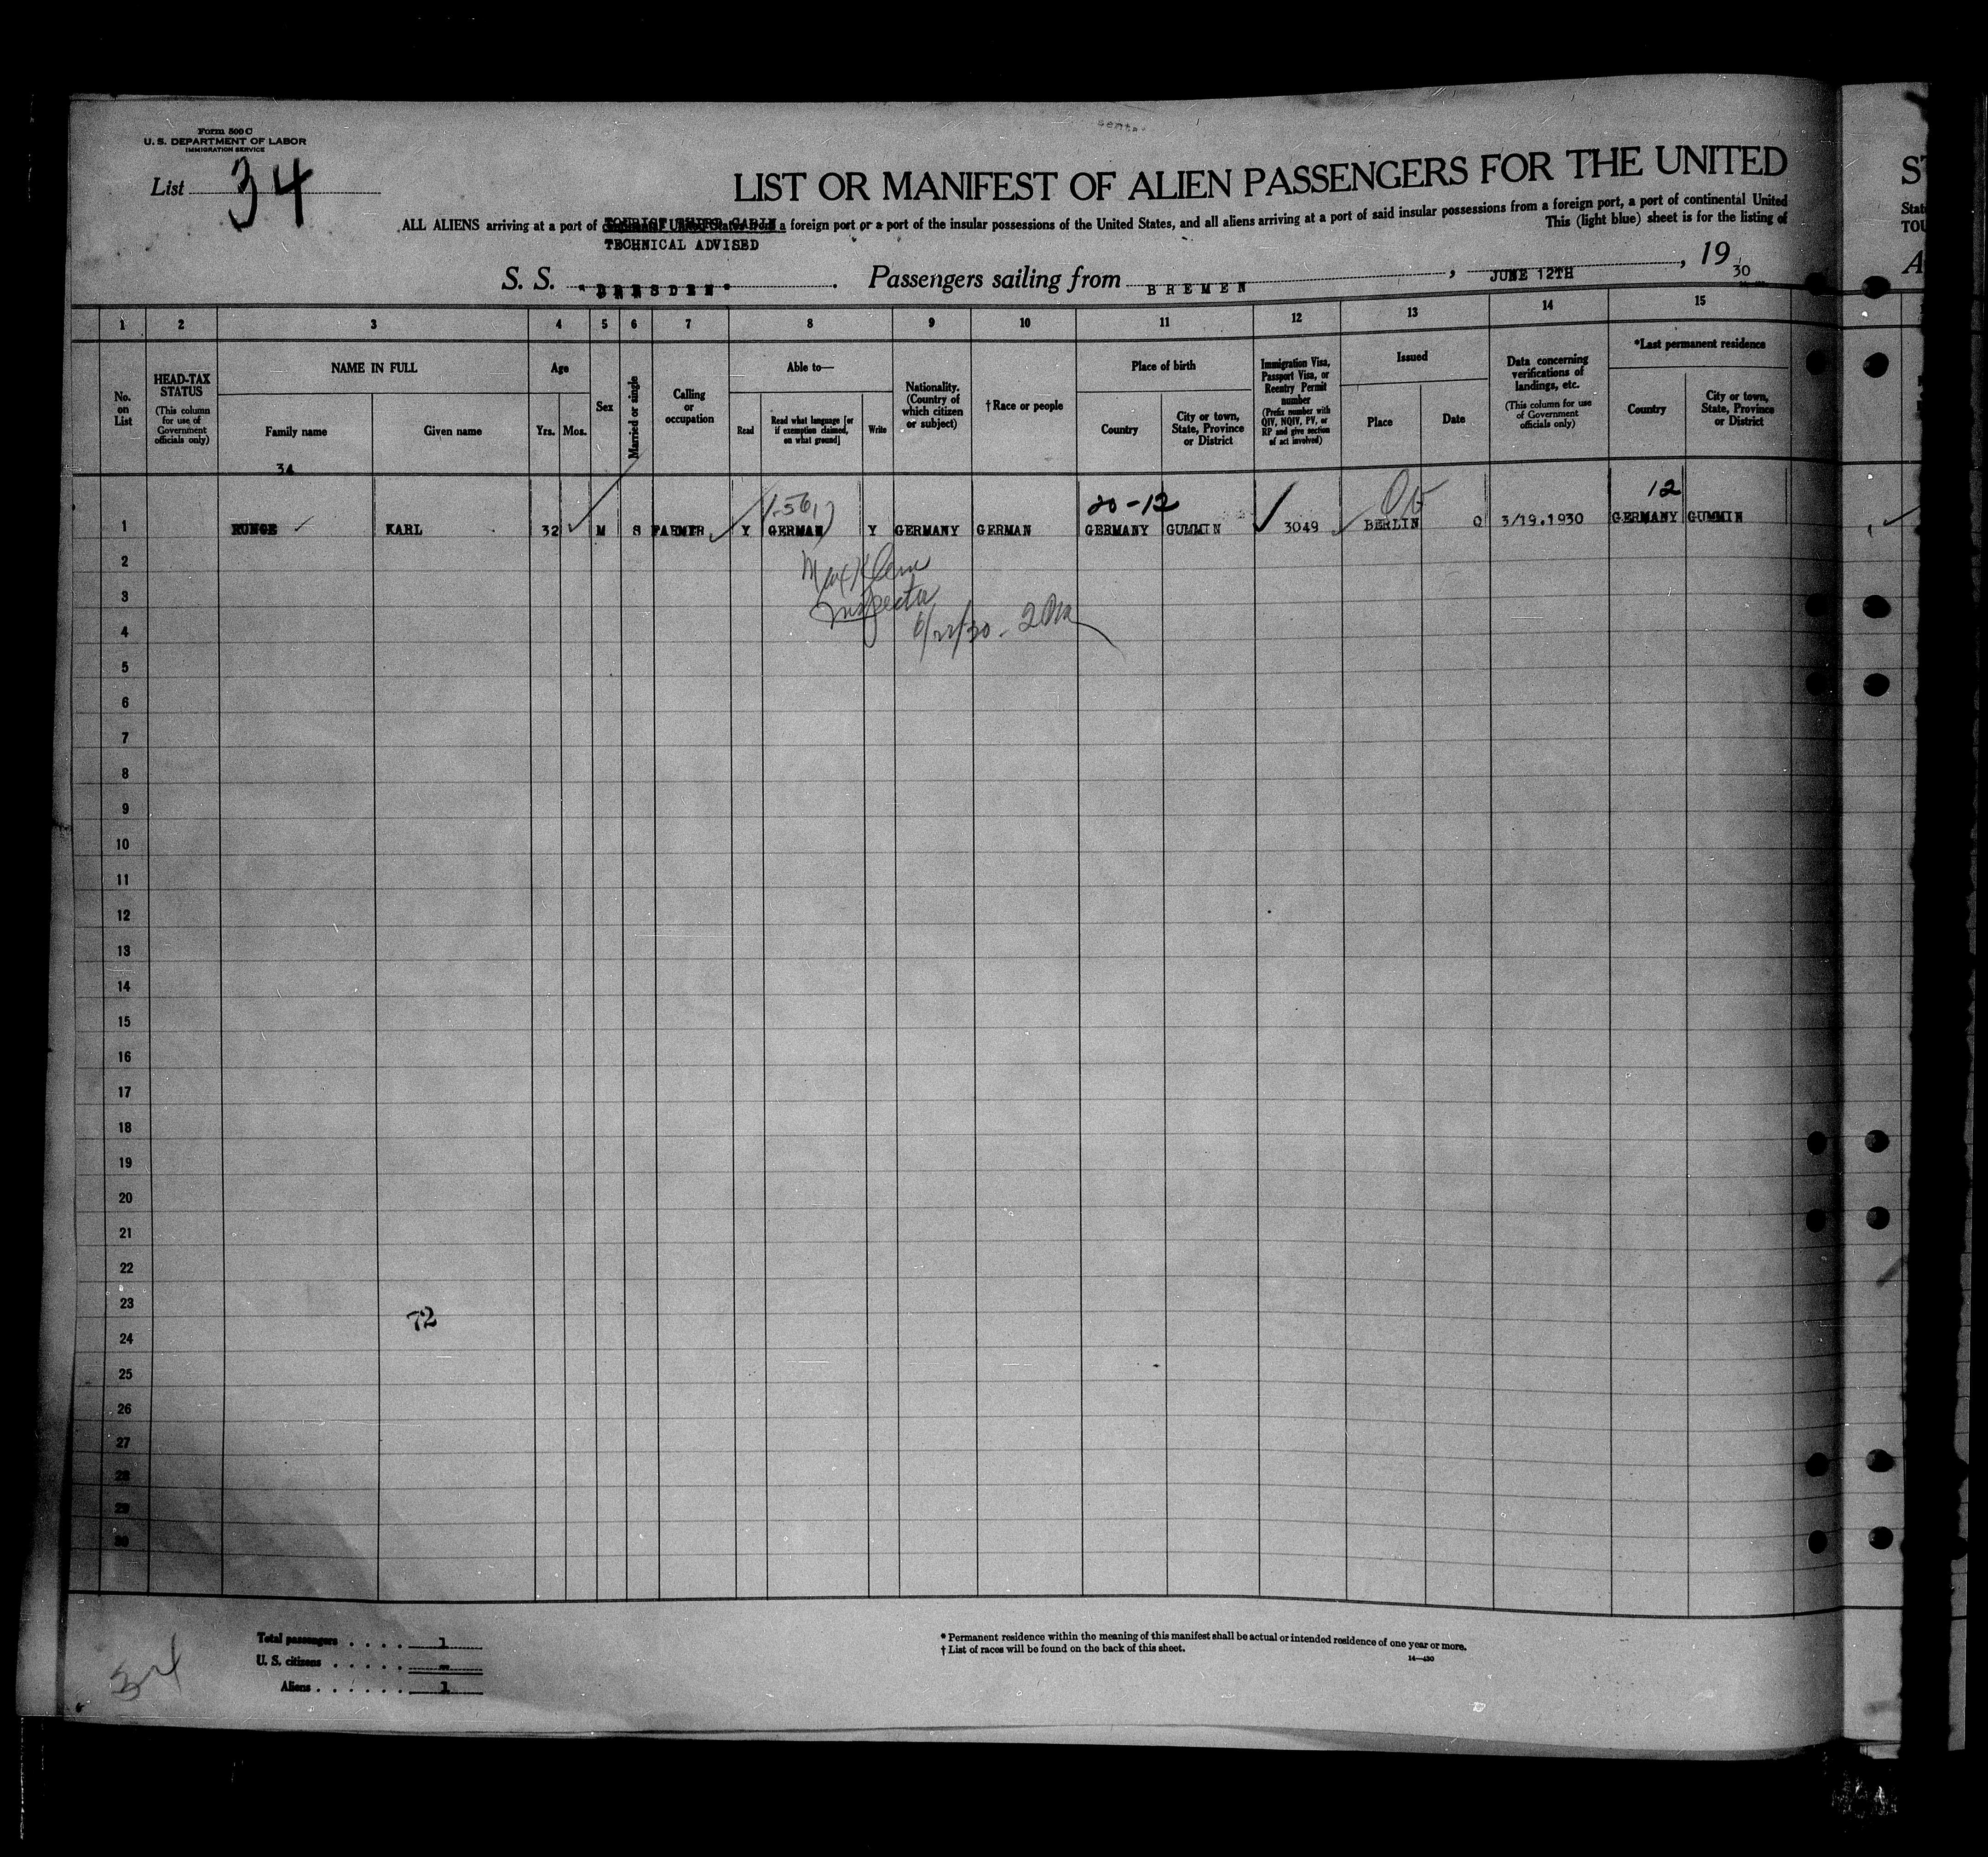 Form 500 C
U. S. DEPARTMENT OF LABOR
IMMIGRATION SERVICE
List 34
LIST OR MANIFEST OF ALIEN PASSENGERS FOR THE UNITED
ALL ALIENS arriving at a port of continental United States from a foreign port or a port of the insular possessions of the United States, and all aliens arriving at a port of said insular possessions from a foreign port, a port of continental United
TOURIST THIRD CABIN
This (light blue) sheet is for the listing of
TECHNICAL ADVISED
S. S. "DRESDEN". Passengers sailing from BREMEN, JUNE 12TH, 19 30
1 2 3 4 5 6 7 8 9 10 11 12 13 14 15
No. on List
HEAD-TAX STATUS (This column for use of Government officials only)
NAME IN FULL
Family name Given name
Age
Yrs. Mos.
Sex
Married or single
Calling or occupation
Able to—
Read
Read what language [or if exemption claimed, on what ground]
Write
Nationality. (Country of which citizen or subject)
†Race or people
Place of birth
Country
City or town, State, Province or District
Immigration Visa, Passport Visa, or Reentry Permit number (Prefix number with QIV, NQIV, PV, or RP and give section of act involved)
Issued
Place Date
Data concerning verifications of landings, etc. (This column for use of Government officials only)
*Last permanent residence
Country
City or town, State, Province or District
34
20-12 12
1 RUNGE KARL 32 M S FARMER Y GERMAN Y GERMANY GERMAN GERMANY GUMMIN 3049 BERLIN 3/19.1930 GERMANY GUMMIN
2
Max Klein
3
Inspector
4
6/22/30
5
6
7
8
9
10
11
12
13
14
15
16
17
18
19
20
21
22
23
72
24
25
26
27
28
29
30
Total passengers . . . . 1
U. S. citizens . . . . . -
Aliens . . . . . . 1
34
* Permanent residence within the meaning of this manifest shall be actual or intended residence of one year or more.
† List of races will be found on the back of this sheet.
14—430